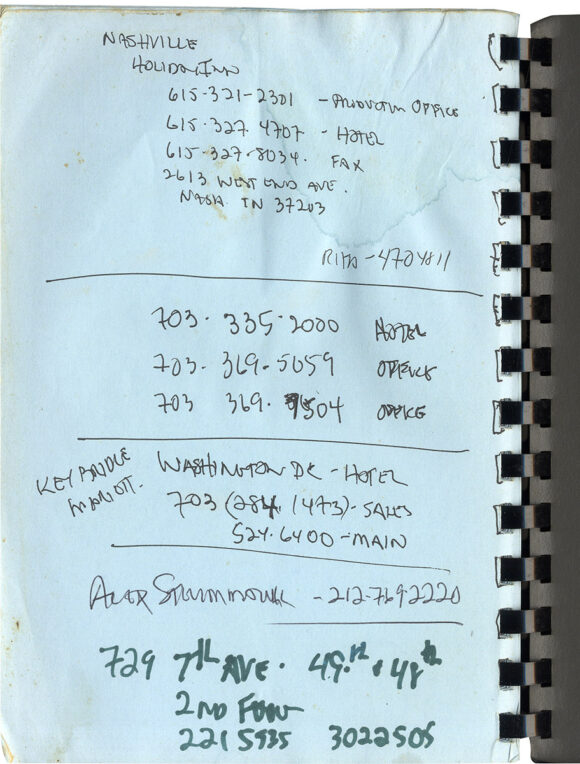 NASHVILLE
HOLIDAY INN
615-321-2301 - PRODUCTION OFFICE
615.327 4707 - HOTEL
615-327-8034. FAX
2613 WEST END AVE.
NASH TN 37203
RITA - 4704811
703. 335-2000 HOTEL
703. 369-5059 OFFICE
703 369. 9504 OFFICE
KEY BRIDGE
MARIOTT.
WASHINGTON DC - HOTEL
703 (284. 1473) - SALES
524.6400 - MAIN
ALEX - 212-769-2220
729 7th AVE. 49th + 48th
2ND FLOOR
2215935 3022505